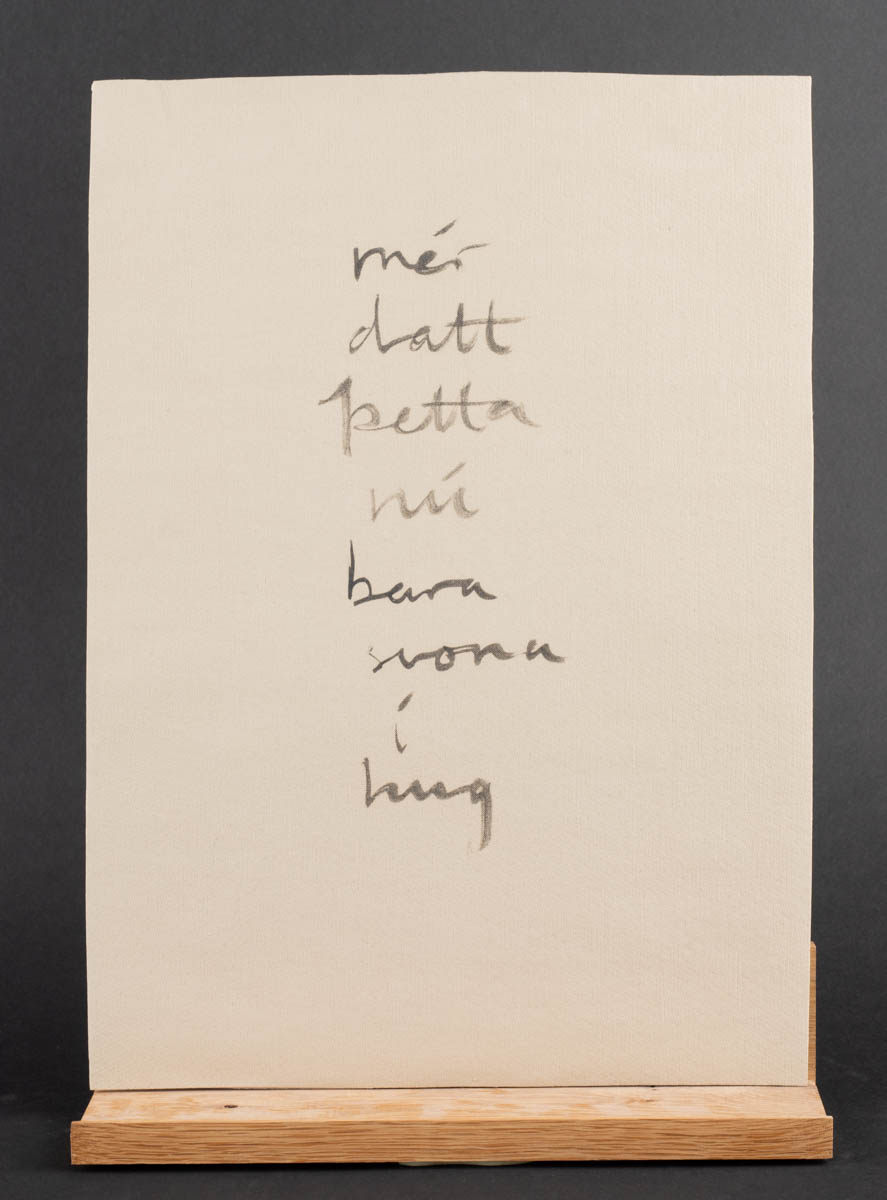 mér
datt
þetta
nú
bara
svona
í
hug